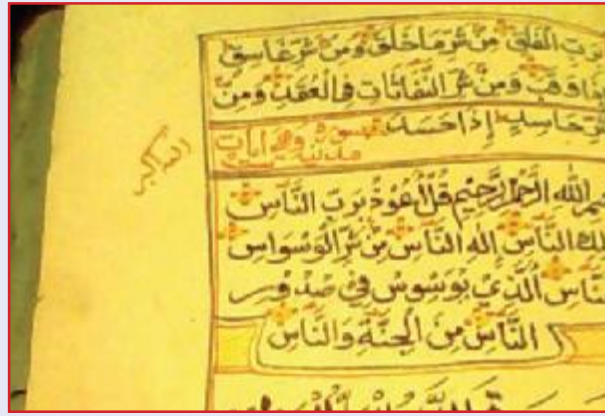 برب الفلق من شر ما خلق ومن شر غاسق
وقب ومن شر النفاثات في العقد ومن
حاسد إذا حسد سورة
مدنية
الله اكبر
الله الرحمن الرحيم قل أعوذ برب الناس
الناس إله الناس من شر الوسواس
الذي يوسوس في صدور
الناس من الجنة والناس